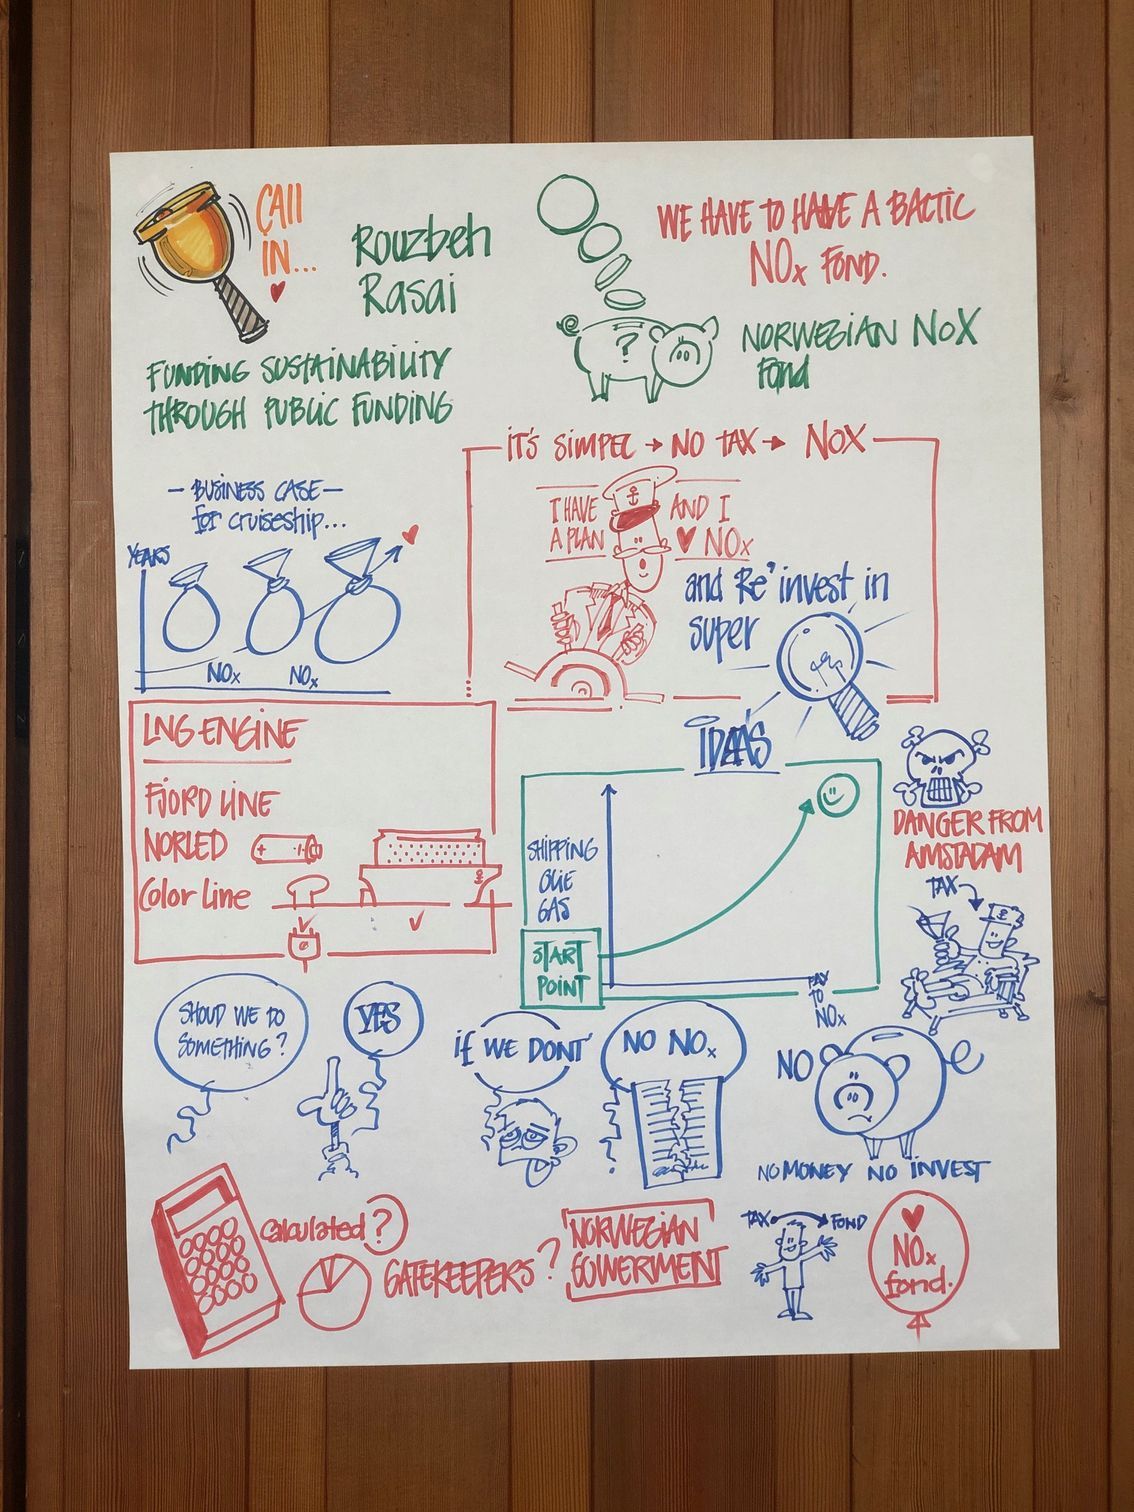 CAll
IN...
Rouzbeh
Rasai
FUNDING SUSTAINABILITY
THROUGH PUBLIC FUNDING
WE HAVE TO HAVE A BACTIC
NOx FOND.
NORWEGIAN NOX
Fond
- BUSINESS CASE -
for cruiseship...
YEARS
NOx NOx
iT'S SIMPEL → NO TAX → NOX
I HAVE
A PLAN
AND I
♥ NOx
and Re'invest in
super
IDEAS
LNG-ENGINE
FJORD LINE
NORLED
Color Line
+
SHIPPING
OLIE
GAS
START
POINT
TAX
TO
NOx
DANGER FROM
AMSTADAM
TAX
SHOUD WE DO
SOMETHING?
YES
iF WE DONT'
NO NOx
NO
NO MONEY NO INVEST
Calculated?
GATEKEEPERS?
NORWEGIAN
GOWERMENT
TAX FOND
NOx
fond.